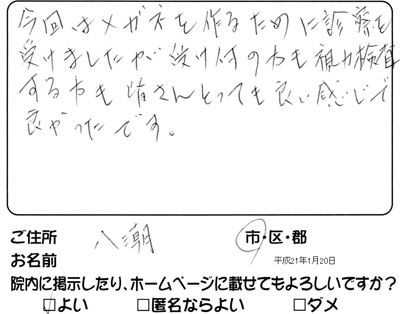 今回はメガネを作るために診察を
受けましたが受け付の方も視力検査
する方も皆さんとっても良い感じで
良かったです。
ご住所 八潮 市・区・郡
お名前 平成21年1月20日
院内に掲示したり、ホームページに載せてもよろしいですか?
□よい □匿名ならよい □ダメ